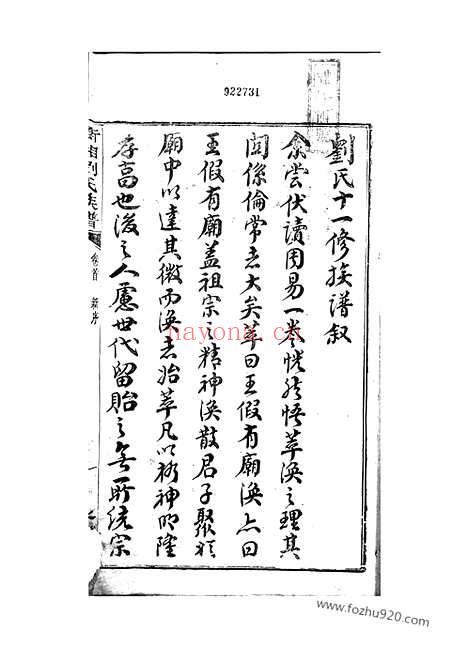 922731
劉氏十一修族譜叙
余嘗伏讀周易一卷恍然悟萃渙之理其
關係倫常者大矣萃曰王假有廟渙亦曰
王假有廟蓋祖宗之精神渙散君子聚於
廟中以達其微而渙者始萃凡以格神明隆
孝高也後之人慮世代留貽之無所統宗
劉氏族譜
卷首 新序
hayona.cn
www.fozhu920.com